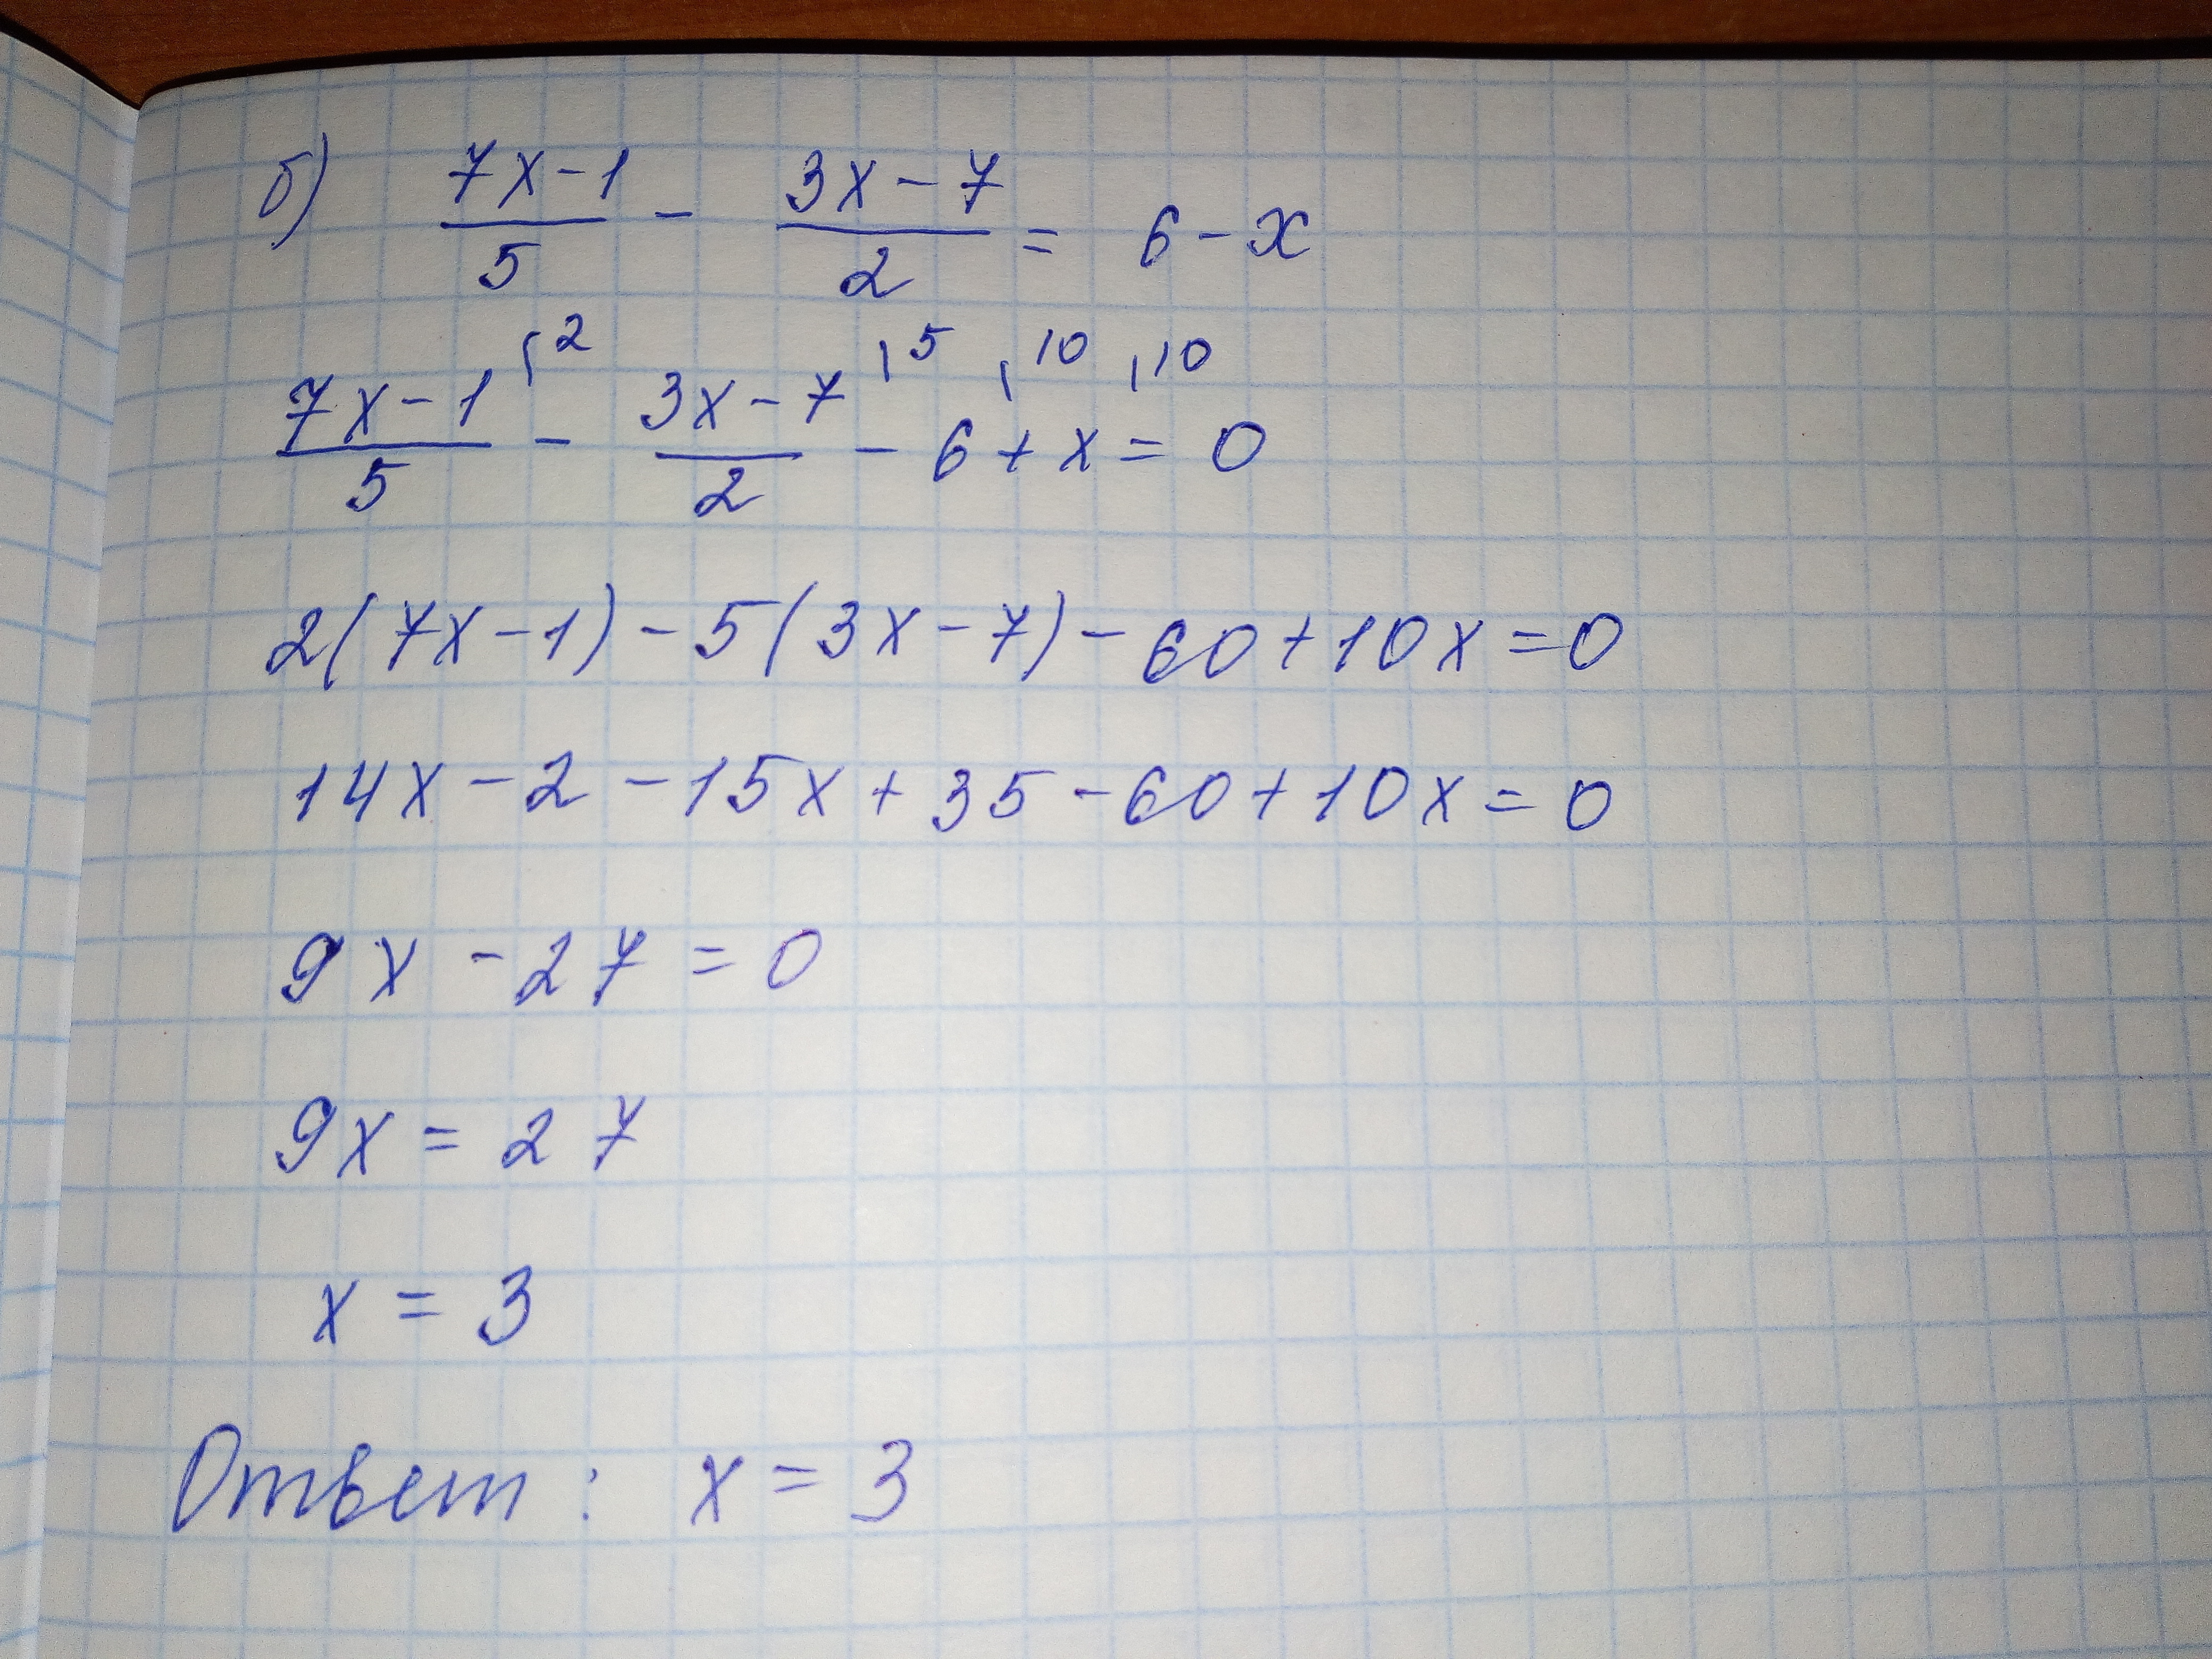 б) (7x-1)/5 - (3x-7)/2 = 6-x
(7x-1)/5 ⁽² - (3x-7)/2 ⁽⁵ - 6 ⁽¹⁰ + x ⁽¹⁰ = 0
2(7x-1)-5(3x-7)-60+10x=0
14x-2-15x+35-60+10x=0
9x-27=0
9x=27
x=3
Ответ: x=3